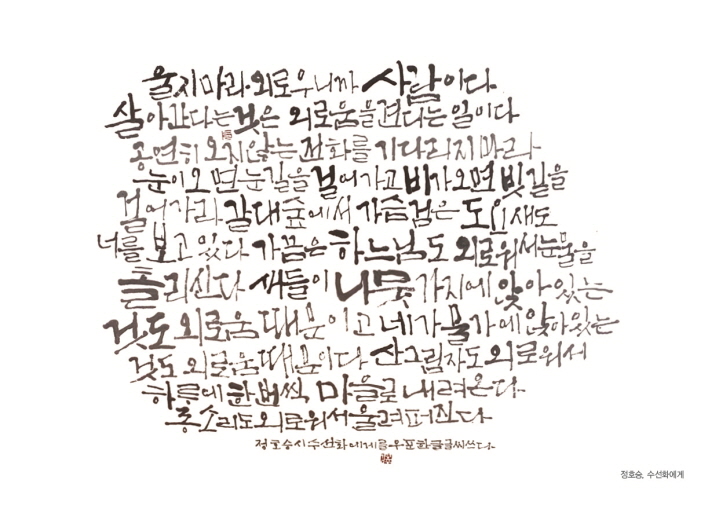 울지마라 외로우니까 사람이다
살아간다는것은 외로움을견디는일이다
공연히 오지않는 전화를 기다리지마라
눈이오면눈길을걸어가고비가오면빗길을
걸어가라 갈대숲에서 가슴검은 도요새도
너를 보고있다 가끔은 하느님도 외로워서눈물을
흘리신다 새들이 나뭇가지에 앉아있는
것도 외로움때문이고 네가 물가에 앉아있는
것도 외로움때문이다 산그림자도 외로워서
하루에 한번씩 마을로 내려온다
종소리도외로워서울려퍼진다
정호승시수선화에게를 글씨쓰다
정호승, 수선화에게